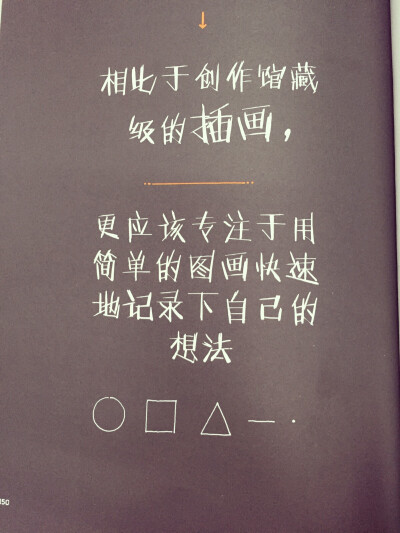 相比于创作馆藏
级的插画，
更应该专注于用
简单的图画快速
地记录下自己的
想法